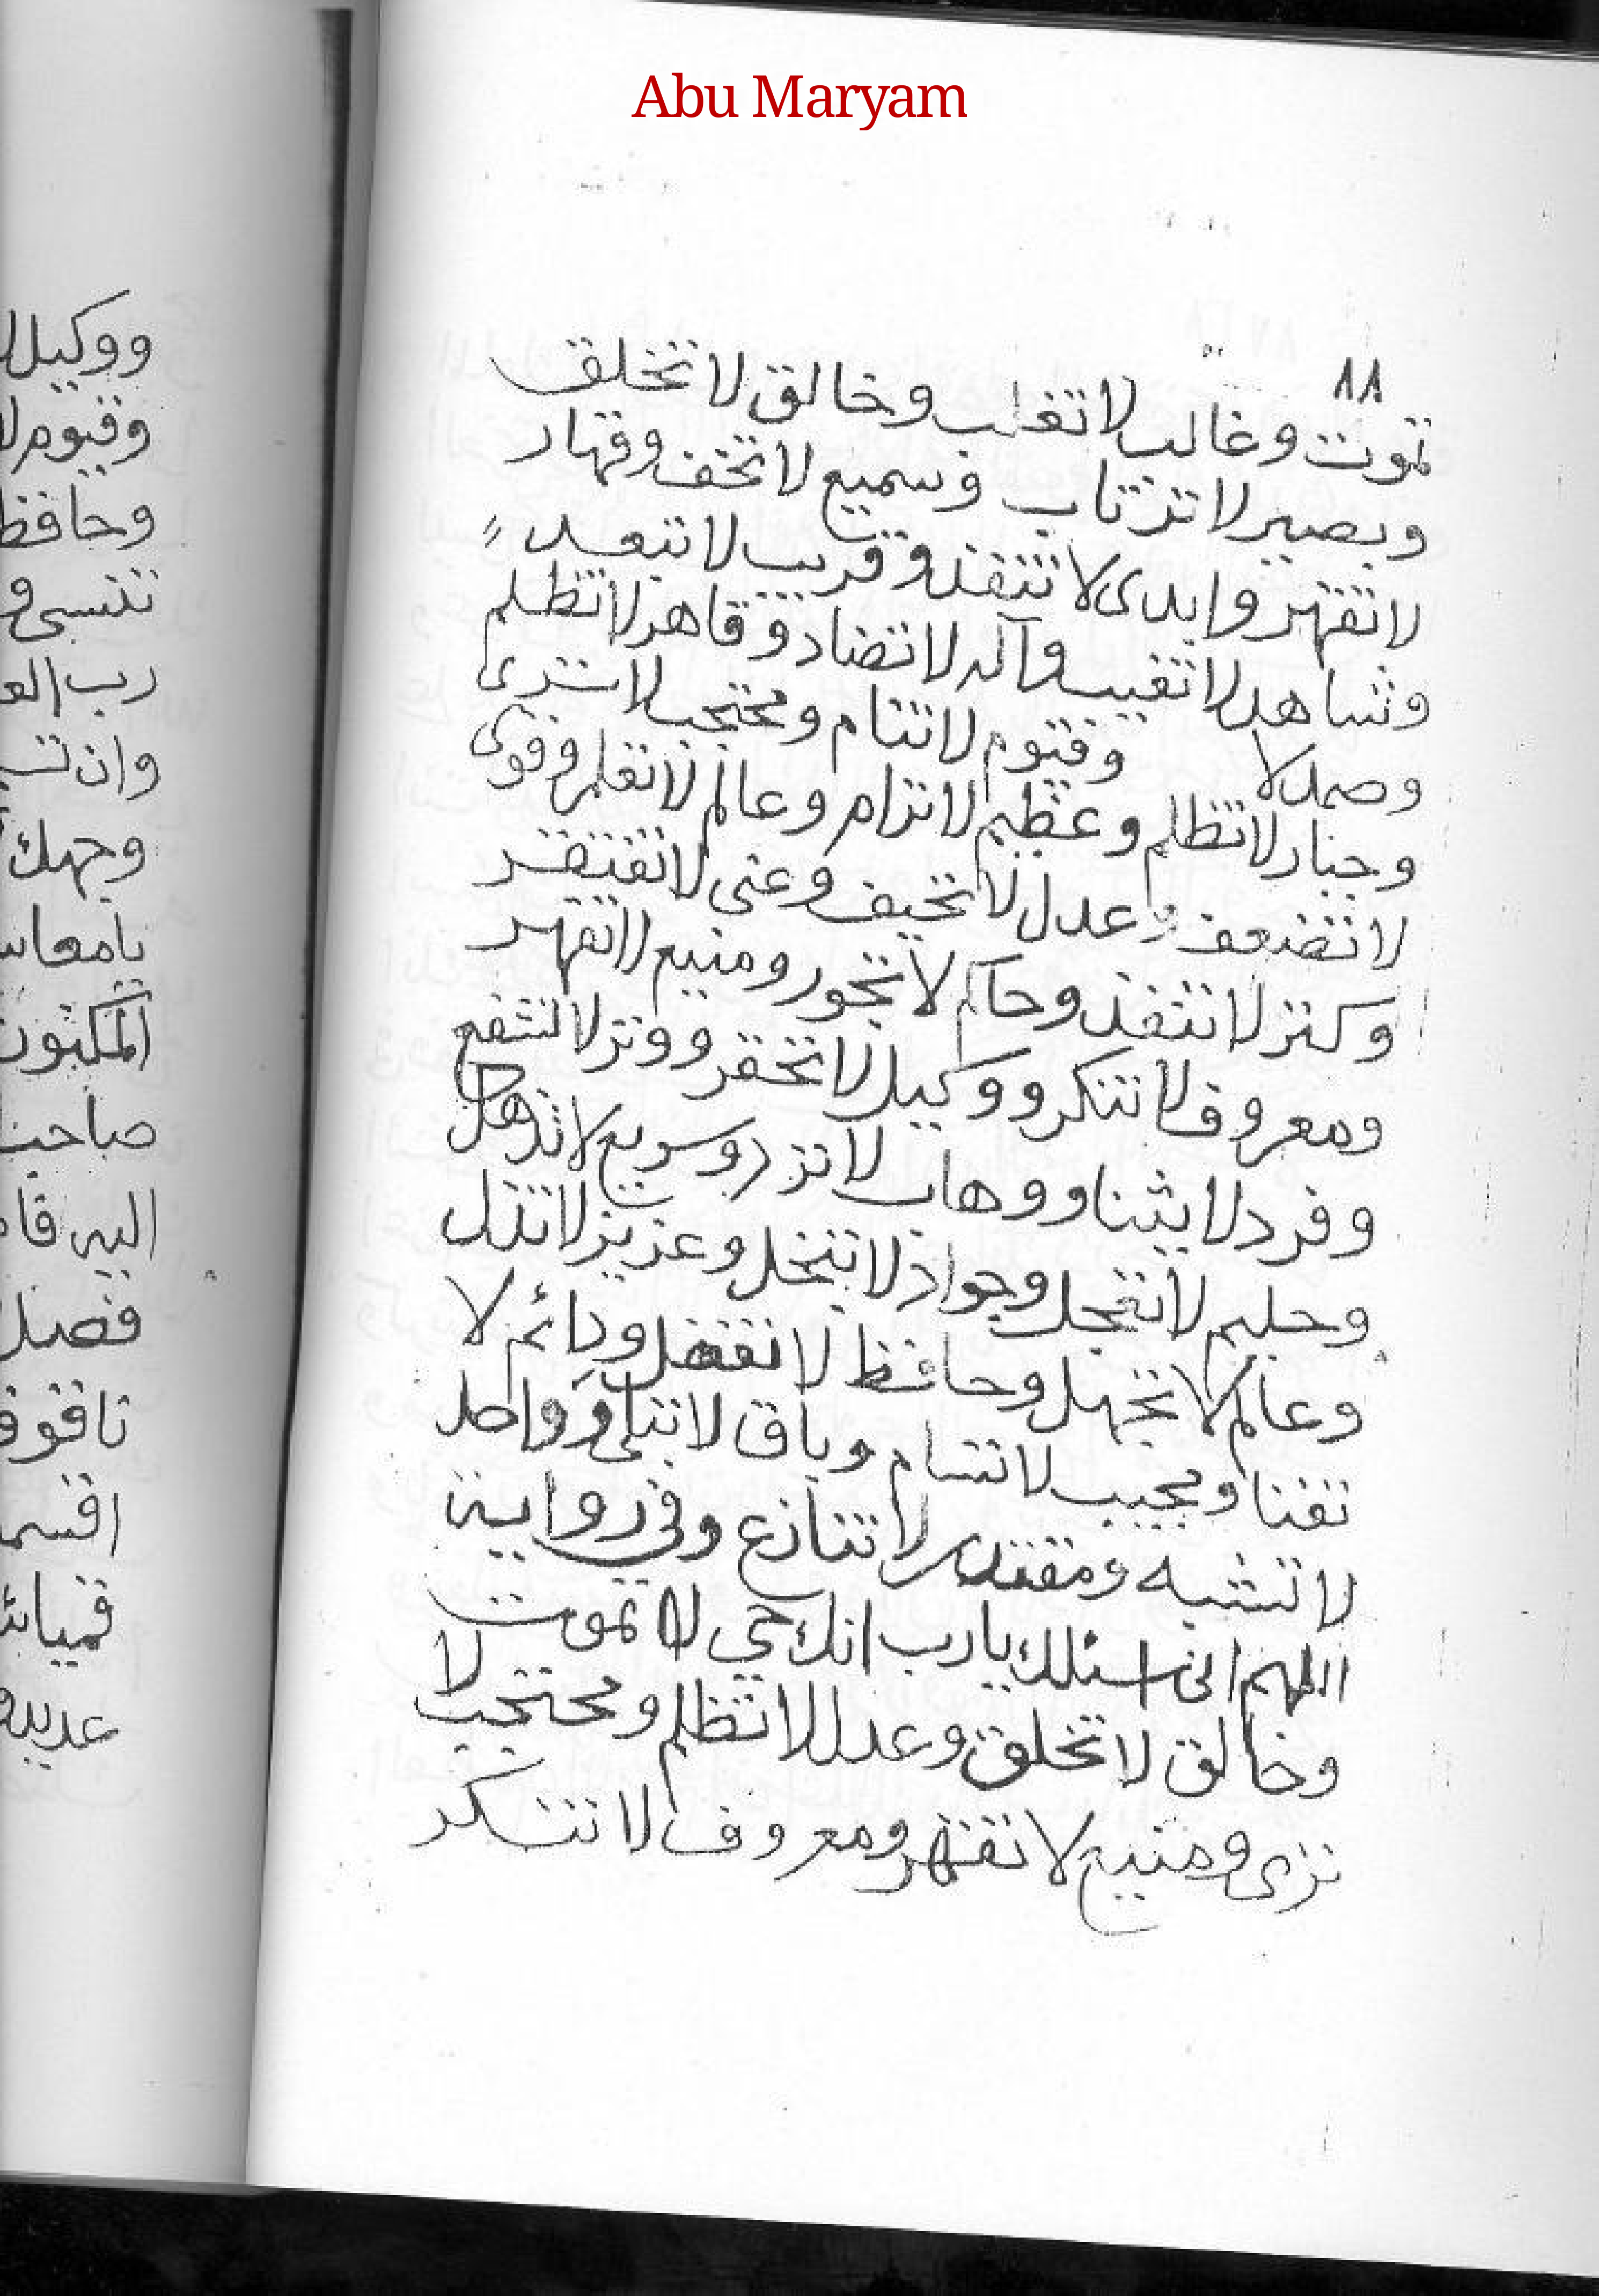 Abu Maryam
١٨
تموت وغالب لا تغلب وخالق لا تخلق
وبصير لا ترتاب وسميع لا تخف وقهار
لا تقهر وابدى لا تنفذ وقريب لا تبعد
وشاهد لا تغيب وآله لا تضاد وقاهر لا تظلم
وصمد لا وقيوم لا تنام ومحتجب لا ترى
وجبار لا تظلم وعظيم لا ترام وعالم لا تعلم وقوى
لا تضعف وعدل لا تحيف وغنى لا تفتقر
وكنز لا تنفذ وحاكم لا تجور ومنيع لا تقهر
ومعروف لا تنكر ووكيل لا تحقر ووتر لا تشفع
وفرد لا يثنا ووهاب لا ترد وسريع لا تذهل
وحليم لا تعجل وجواد لا تبخل وعزيز لا تذل
وعالم لا تجهل وحافظ لا تغفل ودائم لا
تفنا ومجيب لا تسام وباق لا تبلى وواحد
لا تشبه ومقتدر لا تنازع وفي رواية
اللهم انى اسئلك يارب انك حي لا تموت
وخالق لا تخلق وعدل لا تظلم ومحتجب لا
ترى ومنيع لا تقهر ومعروف لا تنكر
ووكيل
وقيوم لا
وحافظ
تنسى و
رب العر
وان تس
وجهك
يا معاش
المكنون
صاحب
اليه قاه
فصل
تاقوف
اقسم